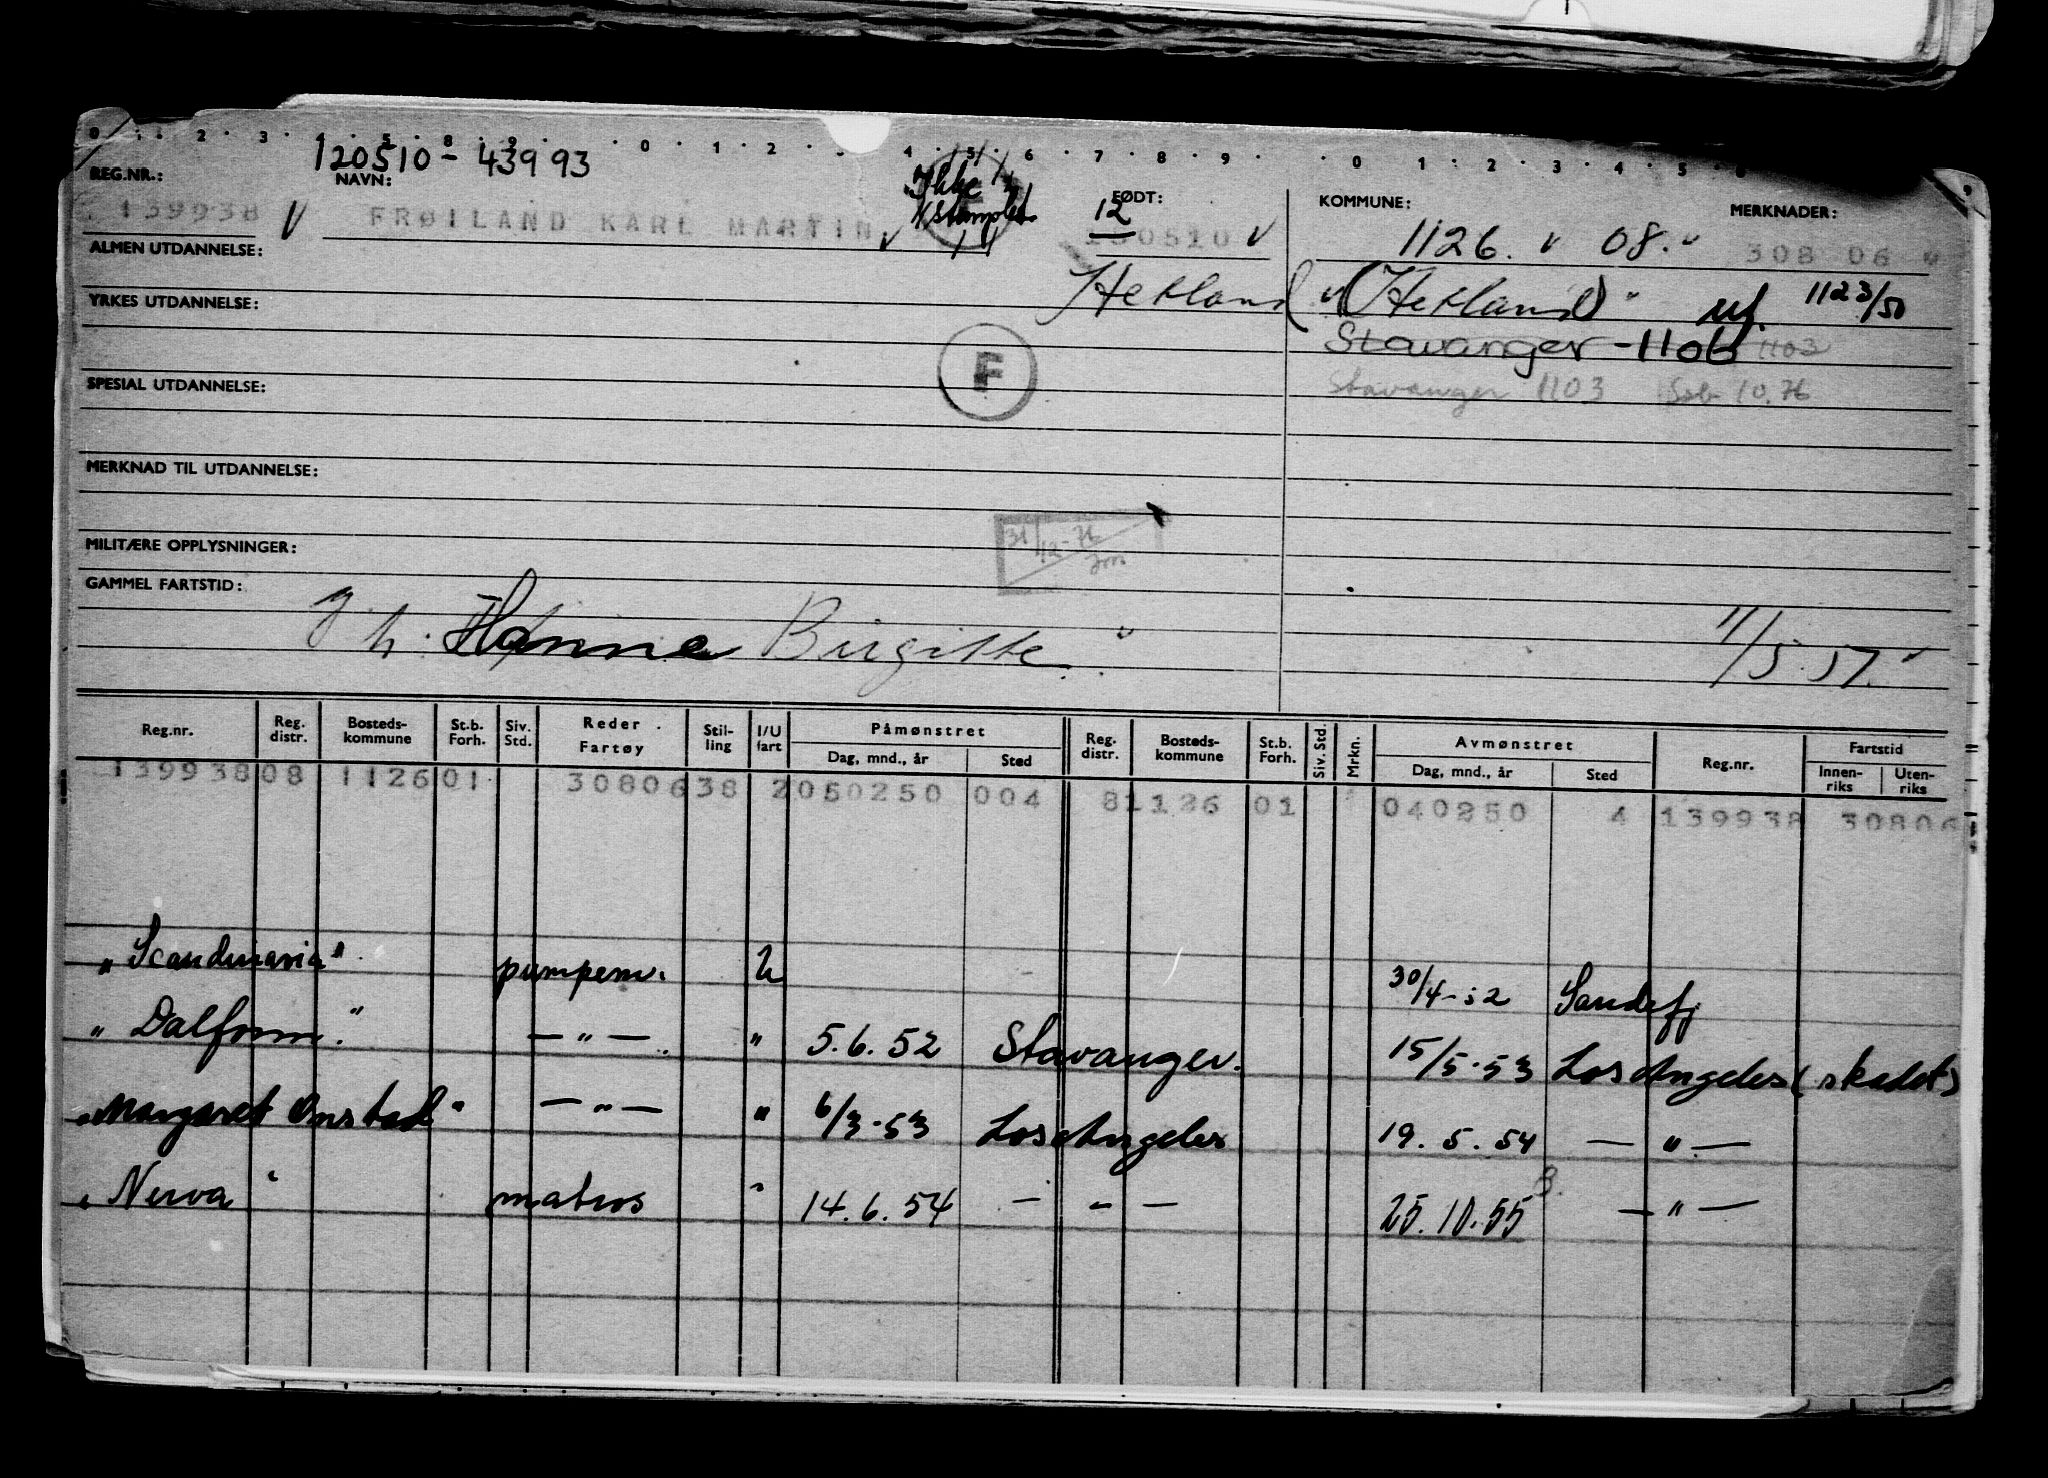 120510 - 43993
REG.NR.: NAVN: FØDT: KOMMUNE: MERKNADER:
Ikke
stamplet
12
139938 FRØILAND KARL MARTIN 130510 1126. 08. 308 06
ALMEN UTDANNELSE:
Hetland (Hetland) 1123/50
YRKES UTDANNELSE:
Stavanger - 1106 1103
F
SPESIAL UTDANNELSE: Stavanger 1103 10.76
MERKNAD TIL UTDANNELSE:
31/12-76
MILITÆRE OPPLYSNINGER:
GAMMEL FARTSTID:
g. h. Hanna Birgitte 11/5.57.
Reg.nr. Reg. distr. Bosteds-kommune St.b. Forh. Siv. Std. Reder Fartøy Stil-ling I/U fart Påmønstret Dag, mnd., år Sted Reg. distr. Bosteds-kommune St.b. Forh. Siv. Std. Mrkn. Avmønstret Dag, mnd., år Sted Reg.nr. Fartstid Innen-riks Uten-riks
139938 08 1126 01 30806 38 2 050250 004 8 1126 01 040250 4 139938 30806
"Scandinavia" pumpem. U 30/4-52 Sandefj
"Dalfonn" — " — " 5.6.52 Stavanger. 15/5-53 Los Angeles (skadet)
"Margaret Onstad" — " — " 6/3-53 Los Angeles 19.5.54 — " —
"Nerva" matros " 14.6.54 — " — 25.10.55 — " —